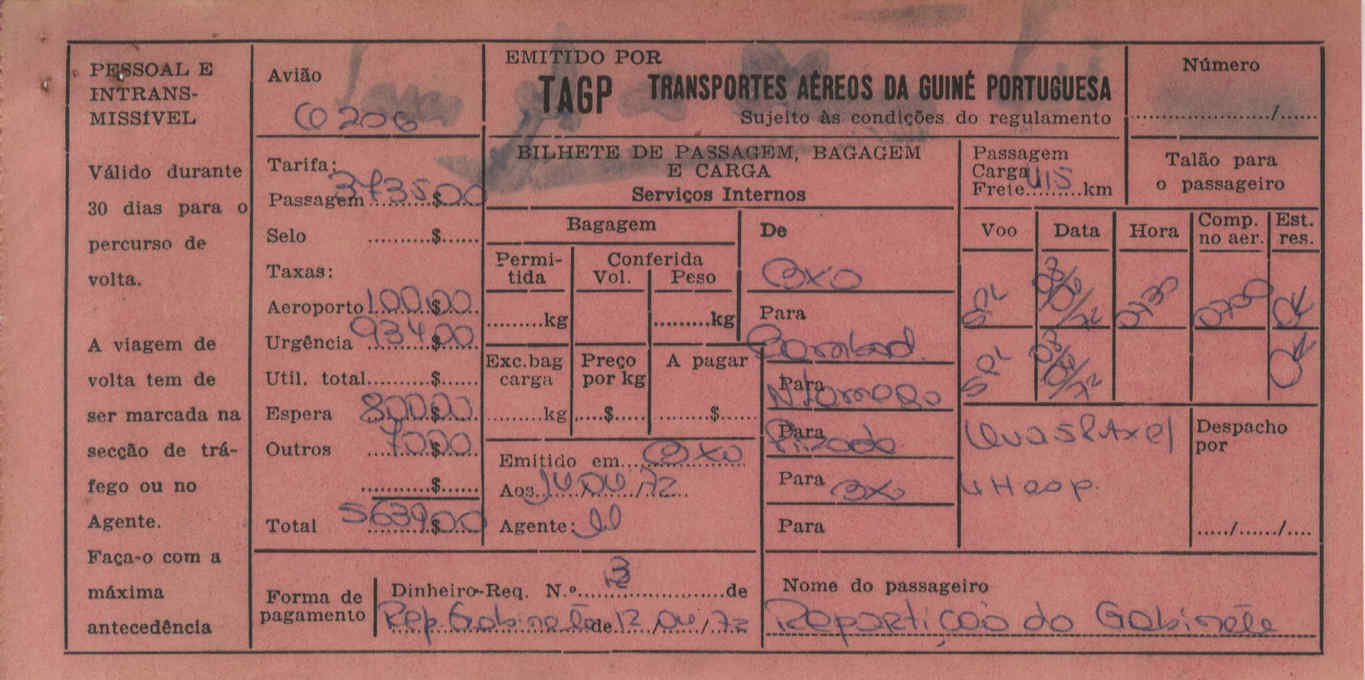 PESSOAL E
INTRANS-
MISSÍVEL
Válido durante
30 dias para o
percurso de
volta.
A viagem de
volta tem de
ser marcada na
secção de trá-
fego ou no
Agente.
Faça-o com a
máxima
antecedência
Avião
CO 206
Tarifa:
Passagem 3735$00
Selo ..........$......
Taxas:
Aeroporto 100$00
Urgência 934$00
Util. total.........$......
Espera 800$00
Outros 70$00
..........$......
Total 5639$00
EMITIDO POR
TAGP TRANSPORTES AÉREOS DA GUINÉ PORTUGUESA
Sujeito às condições do regulamento
BILHETE DE PASSAGEM, BAGAGEM
E CARGA
Serviços Internos
Bagagem
Permi-
tida
Conferida
Vol. Peso
.........kg .........kg
Exc.bag
carga
Preço
por kg
A pagar
........kg ....$..... .......$.....
Emitido em BXO
Aos 14/04/72
Agente:
De
BXO
Para
Para
Para
Para BXO
Para
Passagem
Carga
Frete 415 km
Número
................../.....
Talão para
o passageiro
Voo Data Hora Comp. no aer. Est. res.
SPL 0730 0700 OK
SPL OK
4 Hesp.
Despacho
por
...../....../....
Forma de
pagamento
Dinheiro-Req. N.º 13 de
Rep. Gabinete de 12/04/72
Nome do passageiro
Repartição do Gabinete